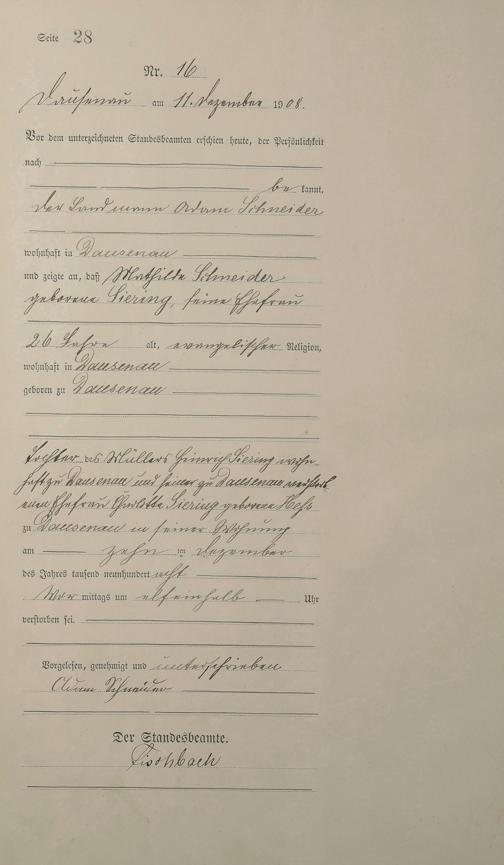 Seite 28
Nr. 16
Dausenau am 11. Dezember 1908.
Vor dem unterzeichneten Standesbeamten erschien heute, der Persönlichkeit
nach
be kannt,
der Landmann Adam Schneider
wohnhaft in Dausenau
und zeigte an, daß Mathilde Schneider
geborene Siering, seine Ehefrau
26 Jahre alt, evangelischer Religion,
wohnhaft in Dausenau
geboren zu Dausenau
Tochter des Müllers Heinrich Siering wohn-
haft zu Dausenau und seiner zu Dausenau verstorb
enen Ehefrau Charlotte Siering geborene Hess
zu Dausenau in seiner Wohnung
am zehn im Dezember
des Jahres tausend neunhundert acht
Vor mittags um elfeinhalb Uhr
verstorben sei.
Vorgelesen, genehmigt und unterschrieben
Adam Schneider
Der Standesbeamte.
Fischbach